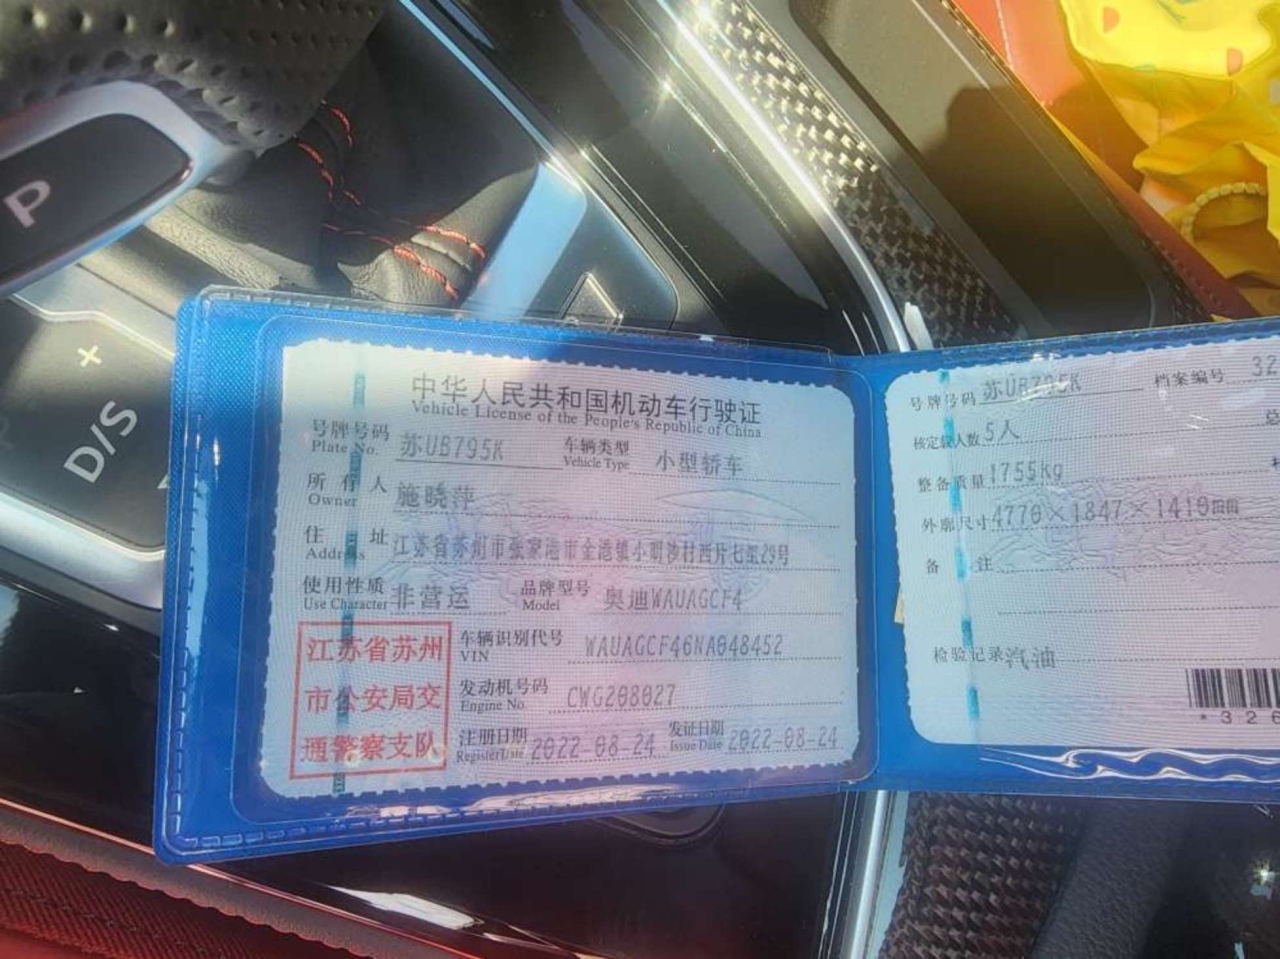 P
+
D/S
中华人民共和国机动车行驶证
Vehicle License of the People's Republic of China
号牌号码 苏UB795K 车辆类型 小型轿车
Plate No. Vehicle Type
所有人 施晓萍
Owner
住址 江苏省苏州市张家港市金港镇小明沙村西片七组29号
Address
使用性质 非营运 品牌型号 奥迪WAUAGCF4
Use Character Model
江苏省苏州
市公安局交
通警察支队
车辆识别代号 WAUAGCF46NA048452
VIN
发动机号码 CWG208027
Engine No.
注册日期 2022-08-24 发证日期 2022-08-24
Register Date Issue Date
号牌号码 苏UB795K 档案编号 32
核定载人数 5人 总
整备质量 1755kg
外廓尺寸 4770×1847×1410mm
备注
检验记录 汽油
*326